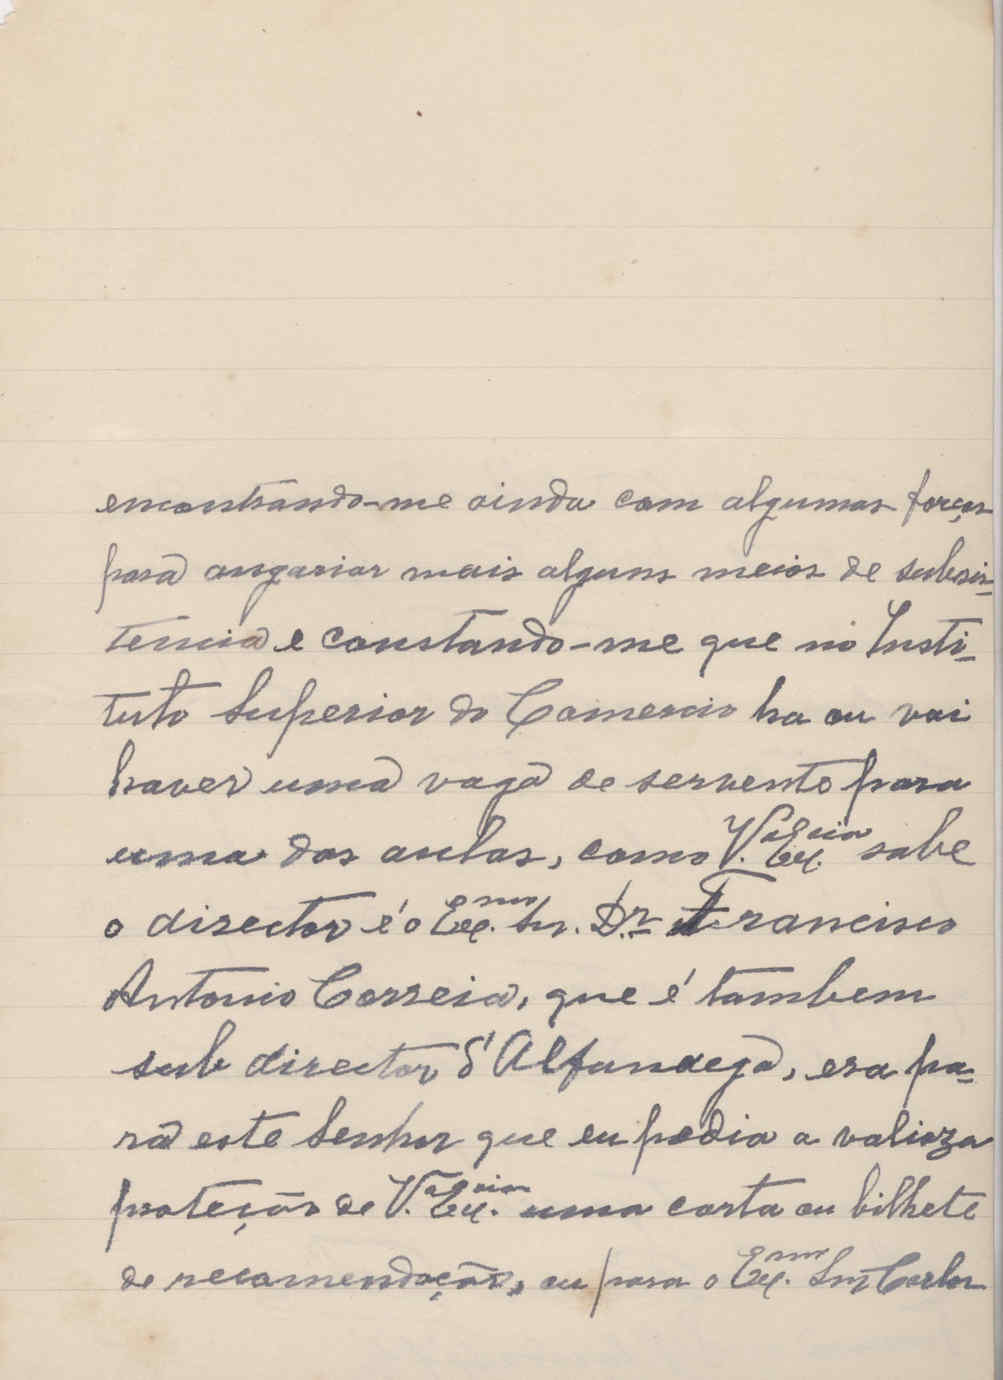 encontrando-me ainda com algumas forças
para angariar mais alguns meios de subsis-
tencia e constando-me que no Insti-
tuto Superior do Comercio ha ou vai
haver uma vaga de servente para
uma das aulas, como V.ª Ex.cia sabe
o director é o Ex.mo Sr. D.r Francisco
Antonio Correia, que é tambem
sub director d'Alfandega, era pa-
ra este Senhor que eu pedia a valioza
proteção de V.ª Ex.cia uma carta ou bilhete
de recomendação, ou para o Ex.mo Snr Carlos